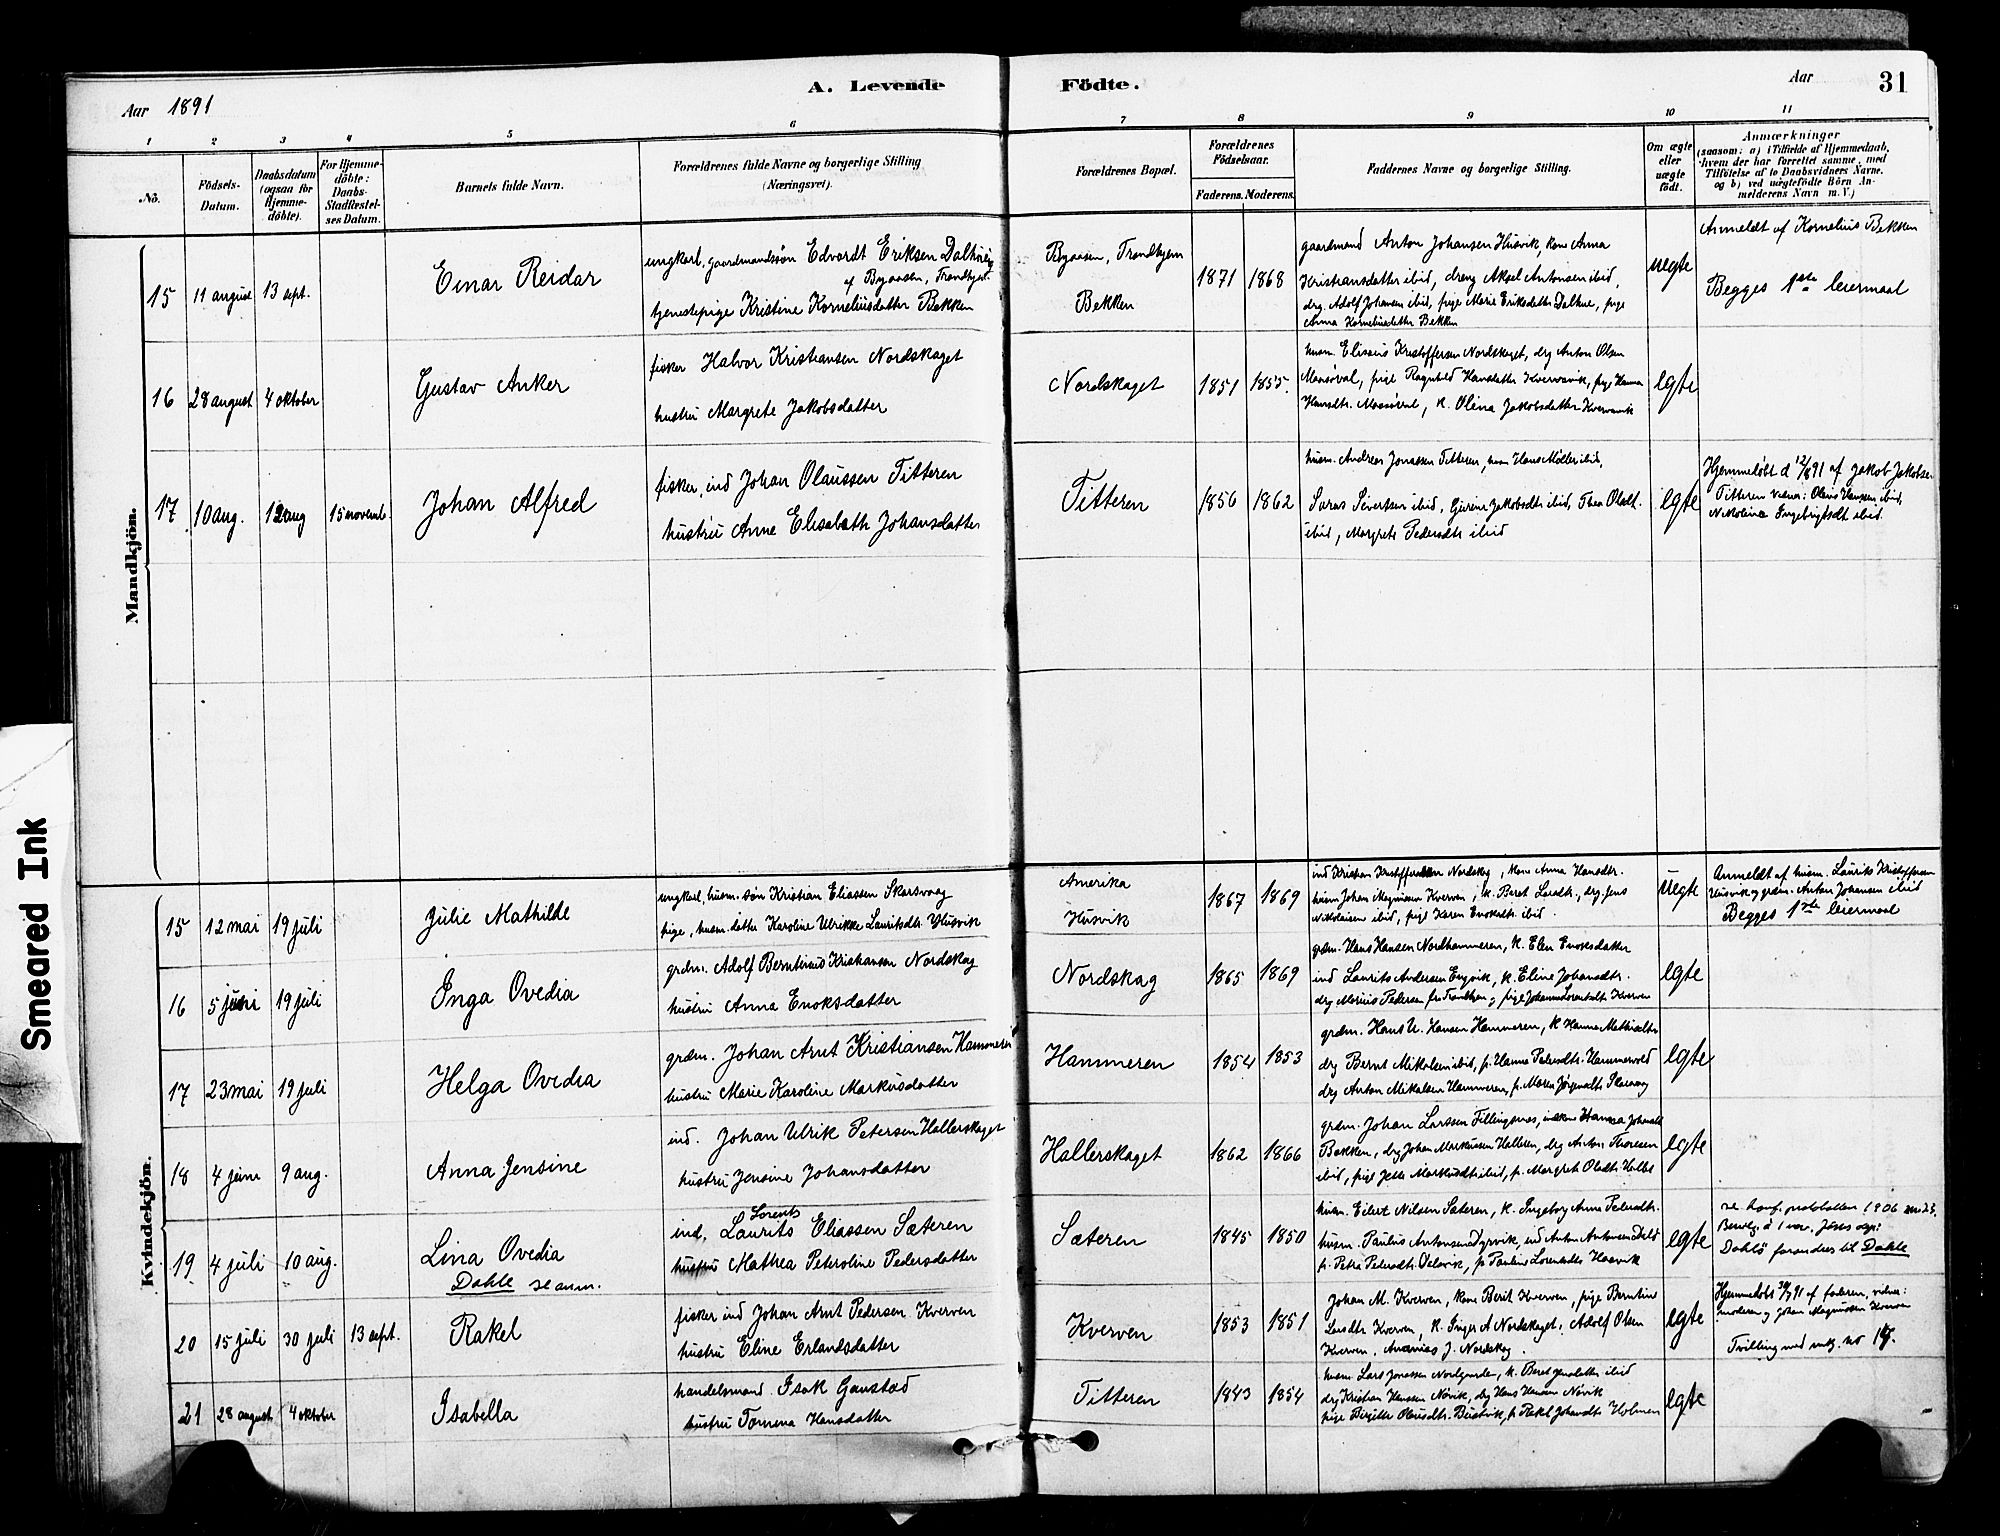 A. Levende Födte.
Aar 1891
Aar
31
1 2 3 4 5 6 7 8 9 10 11
No.
Födsels-Datum.
Daabsdatum (ogsaa for Hjemme-döbte).
For Hjemme-döbte: Daabs-Stadfæstel-ses Datum.
Barnets fulde Navn.
Forældrenes fulde Navne og borgerlige Stilling (Næringsvei).
Forældrenes Bopæl.
Forældrenes Födselsaar.
Faderens. Moderens.
Faddernes Navne og borgerlige Stilling.
Om ægte eller uægte födt.
Anmærkninger
(saasom: a) i Tilfælde af Hjemmedaab,
hvem der har forrettet samme, med
Tilföielse af to Daabsvidners Navne.
og b) ved uægtefödte Börn An-
melderens Navn m. V.)
Mandkjön.
15 11 august 13 sept. Einar Reidar
ungkarl, gaardmandssön Edvardt Eriksen Dalhne
af Byaasen, Trondhjem
tjenestepige Kristine Korneliusdatter Bekken
Byaasen, Trondhjem
Bekken
1871 1868
gaardmand Anton Johansen Husvik, kone Anna
Kristiansdatter ibid, dreng Aksel Antonsen ibid,
drg. Adolf Johansen ibid, pige Marie Eriksdatter Dalhne, pige
Anna Korneliusdatter Bekken
uegte
Anmeldt af Kornelius Bekken
Begges 1ste leiermaal
16 28 august 4 oktober Gustav Anker
fisker Halvor Kristiansen Nordskaget
hustru Margrete Jakobsdatter
Nordskaget
1851 1855.
husm. Elisæus Kristoffersen Nordskaget, drg Anton Olsen
Mausöval, pige Ragnhild Hansdatter Kvervavik, pige Hanna
Hansdtr. Mausöval, k. Olina Jakobsdatter Kvervavik
egte
17 10 aug. 12 aug 15 novemb. Johan Alfred
fisker, ind Johan Olaussen Titteren
hustru Anne Elisabeth Johansdatter
Titteren
1856 1862
husm. Andreas Jonassen Titteren, husm Hans Möller ibid,
Saras Sivertsen ibid, Gurine Jakobsdtr ibid, Thea Olsdt.
ibid, Margrete Pedersdtr ibid
egte
Hjemmedöbt d 12/8 91 af Jakob Jakobsen
Titteren vidner: Olaus Hansen ibid,
Nikoline Ingebrigtsdt ibid.
Kvindekjön.
15 12 mai 19 juli Julie Mathilde
ungkarl, husm. sön Kristian Eliassen Skarsvaag
pige, husm. datter Karoline Ulrikke Lauritsdtr Husvik
Amerika
Husvik
1867 1869
ind Kristian Kristoffersen Nordskag, kone Anna Hansdtr.
husm Johan Magnusen Kverven, k. Beret Larsdtr, drg. Jens
Nikolaisen ibid, pige Karen Enoksdtr ibid.
uegte
Anmeldt af husm. Laurits Kristoffersen
Husvik og grdm. Anton Johansen ibid
Begges 1ste leiermaal
16 5 juni 19 juli Inga Ovedia
grdm. Adolf Berntinus Kristiansen Nordskag
hustru Anna Enoksdatter
Nordskag
1865 1869
grdm. Hans Hansen Nordhammeren, k. Elen Enoksdatter
ind Laurits Andersen Engvik, k. Eline Johansdtr.
drg Marius Pedersen fra Trondhjem, pige Johanna Lorentsdtr Kverven
egte
17 23 mai 19 juli Helga Ovedia
grdm. Johan Arnt Kristiansen Hammeren
hustru Marie Karoline Markusdatter
Hammeren
1854 1853
grdm. Hans U. Hansen Hammeren, k Hanna Mathisdtr
drg Bernt Mikalsen ibid, p. Hanna Petersdtr. Hammervold
drg Anton Mikalsen Hammeren, p. Maren Jörgensdtr
egte
18 4 juni 9 aug. Anna Jensine
ind. Johan Ulrik Petersen Hallerskaget
hustru Jensine Johansdatter
Hallerskaget
1862 1866
grdm. Johan Larssen Fillingsnes, Hanna Johansdt
Bakken, drg Johan Markussen Halleren, drg Anton Thoresen
ibid, pige Jette Markusdtr ibid, p. Margret Olsdtr.
egte
19 4 juli 10 aug. Lina Ovedia
Dahle se anm.
Lorents
ind, Laurits Eliassen Sæteren
hustru Mathea Peteroline Pedersdatter
Sæteren
1845 1850
husm. Eilert Nilsen Sæteren, k. Ingeborg Anna Pedersdtr.
husm. Paulus Antonsen Dyrvik, ind Anton Antonsen
p. Petra Pedersdtr. Selavik, p Pauline Lorentsdtr
egte
se konf. protokollen 1906 no 23.
Bevilg. d 1 nov.
Dahlö forandres til Dahle
20 15 juli 30 juli 13 sept. Rakel
fisker ind Johan Arnt Pedersen Kverven
hustru Eline Erlandsdatter
Kverven
1853 1851
Johan M. Kverven, kone Berit Kverven, pige Berntine
Larsdtr Kverven, k. Inger A Nordskaget, Adolf Olsen
Kverven, Ananias J. Nordskag.
egte
Hjemmedöbt 30/7 91 af faderen, vidner:
moderen og Johan Magnussen Kverven
Tvilling med mdkj. no 14.
21 28 august 4 oktober Isabella
handelsmand Isak Gaustad
hustru Tomena Hansdatter
Titteren
1843 1854
husm. Lars Jonassen Nordgarden, k. Beret Jensdatter ibid
drg Kristian Hanssen Növik, drg Hans Hansen Növik
pige Birgitte Olausdtr. Bustvik, p Rakel Johansdtr Holmen
egte
Smeared Ink